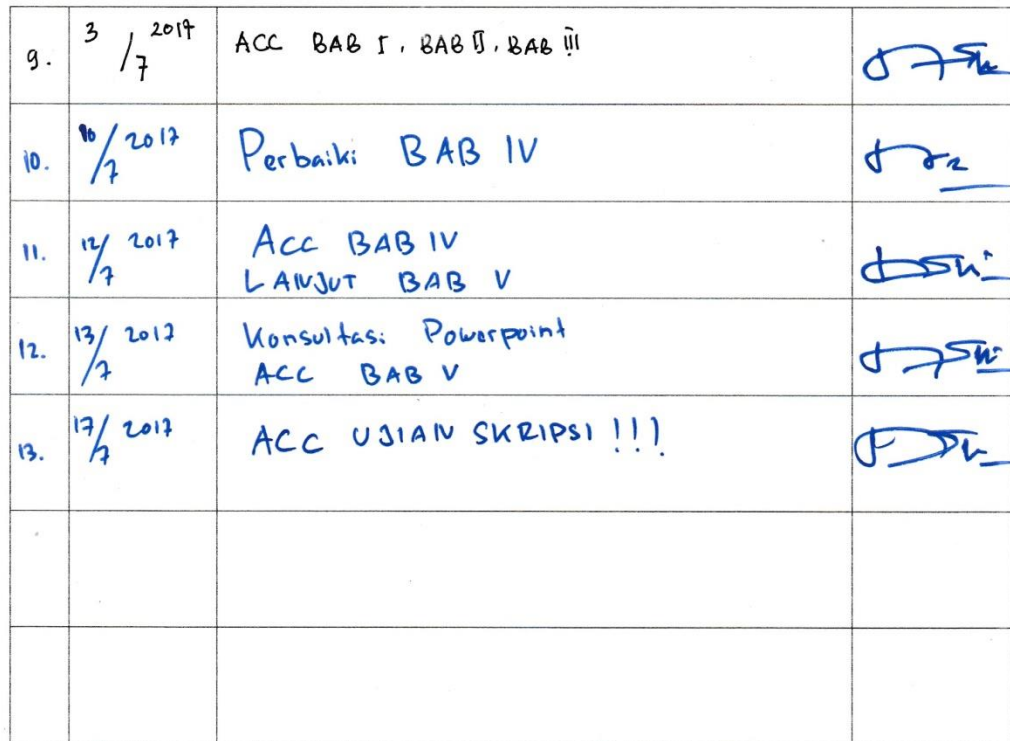 9. 3/7 2017 ACC BAB I, BAB II, BAB III
10. 10/7 2017 Perbaiki BAB IV
11. 12/7 2017 ACC BAB IV
LANJUT BAB V
12. 13/7 2017 Konsultasi Powerpoint
ACC BAB V
13. 17/7 2017 ACC UJIAN SKRIPSI !!!